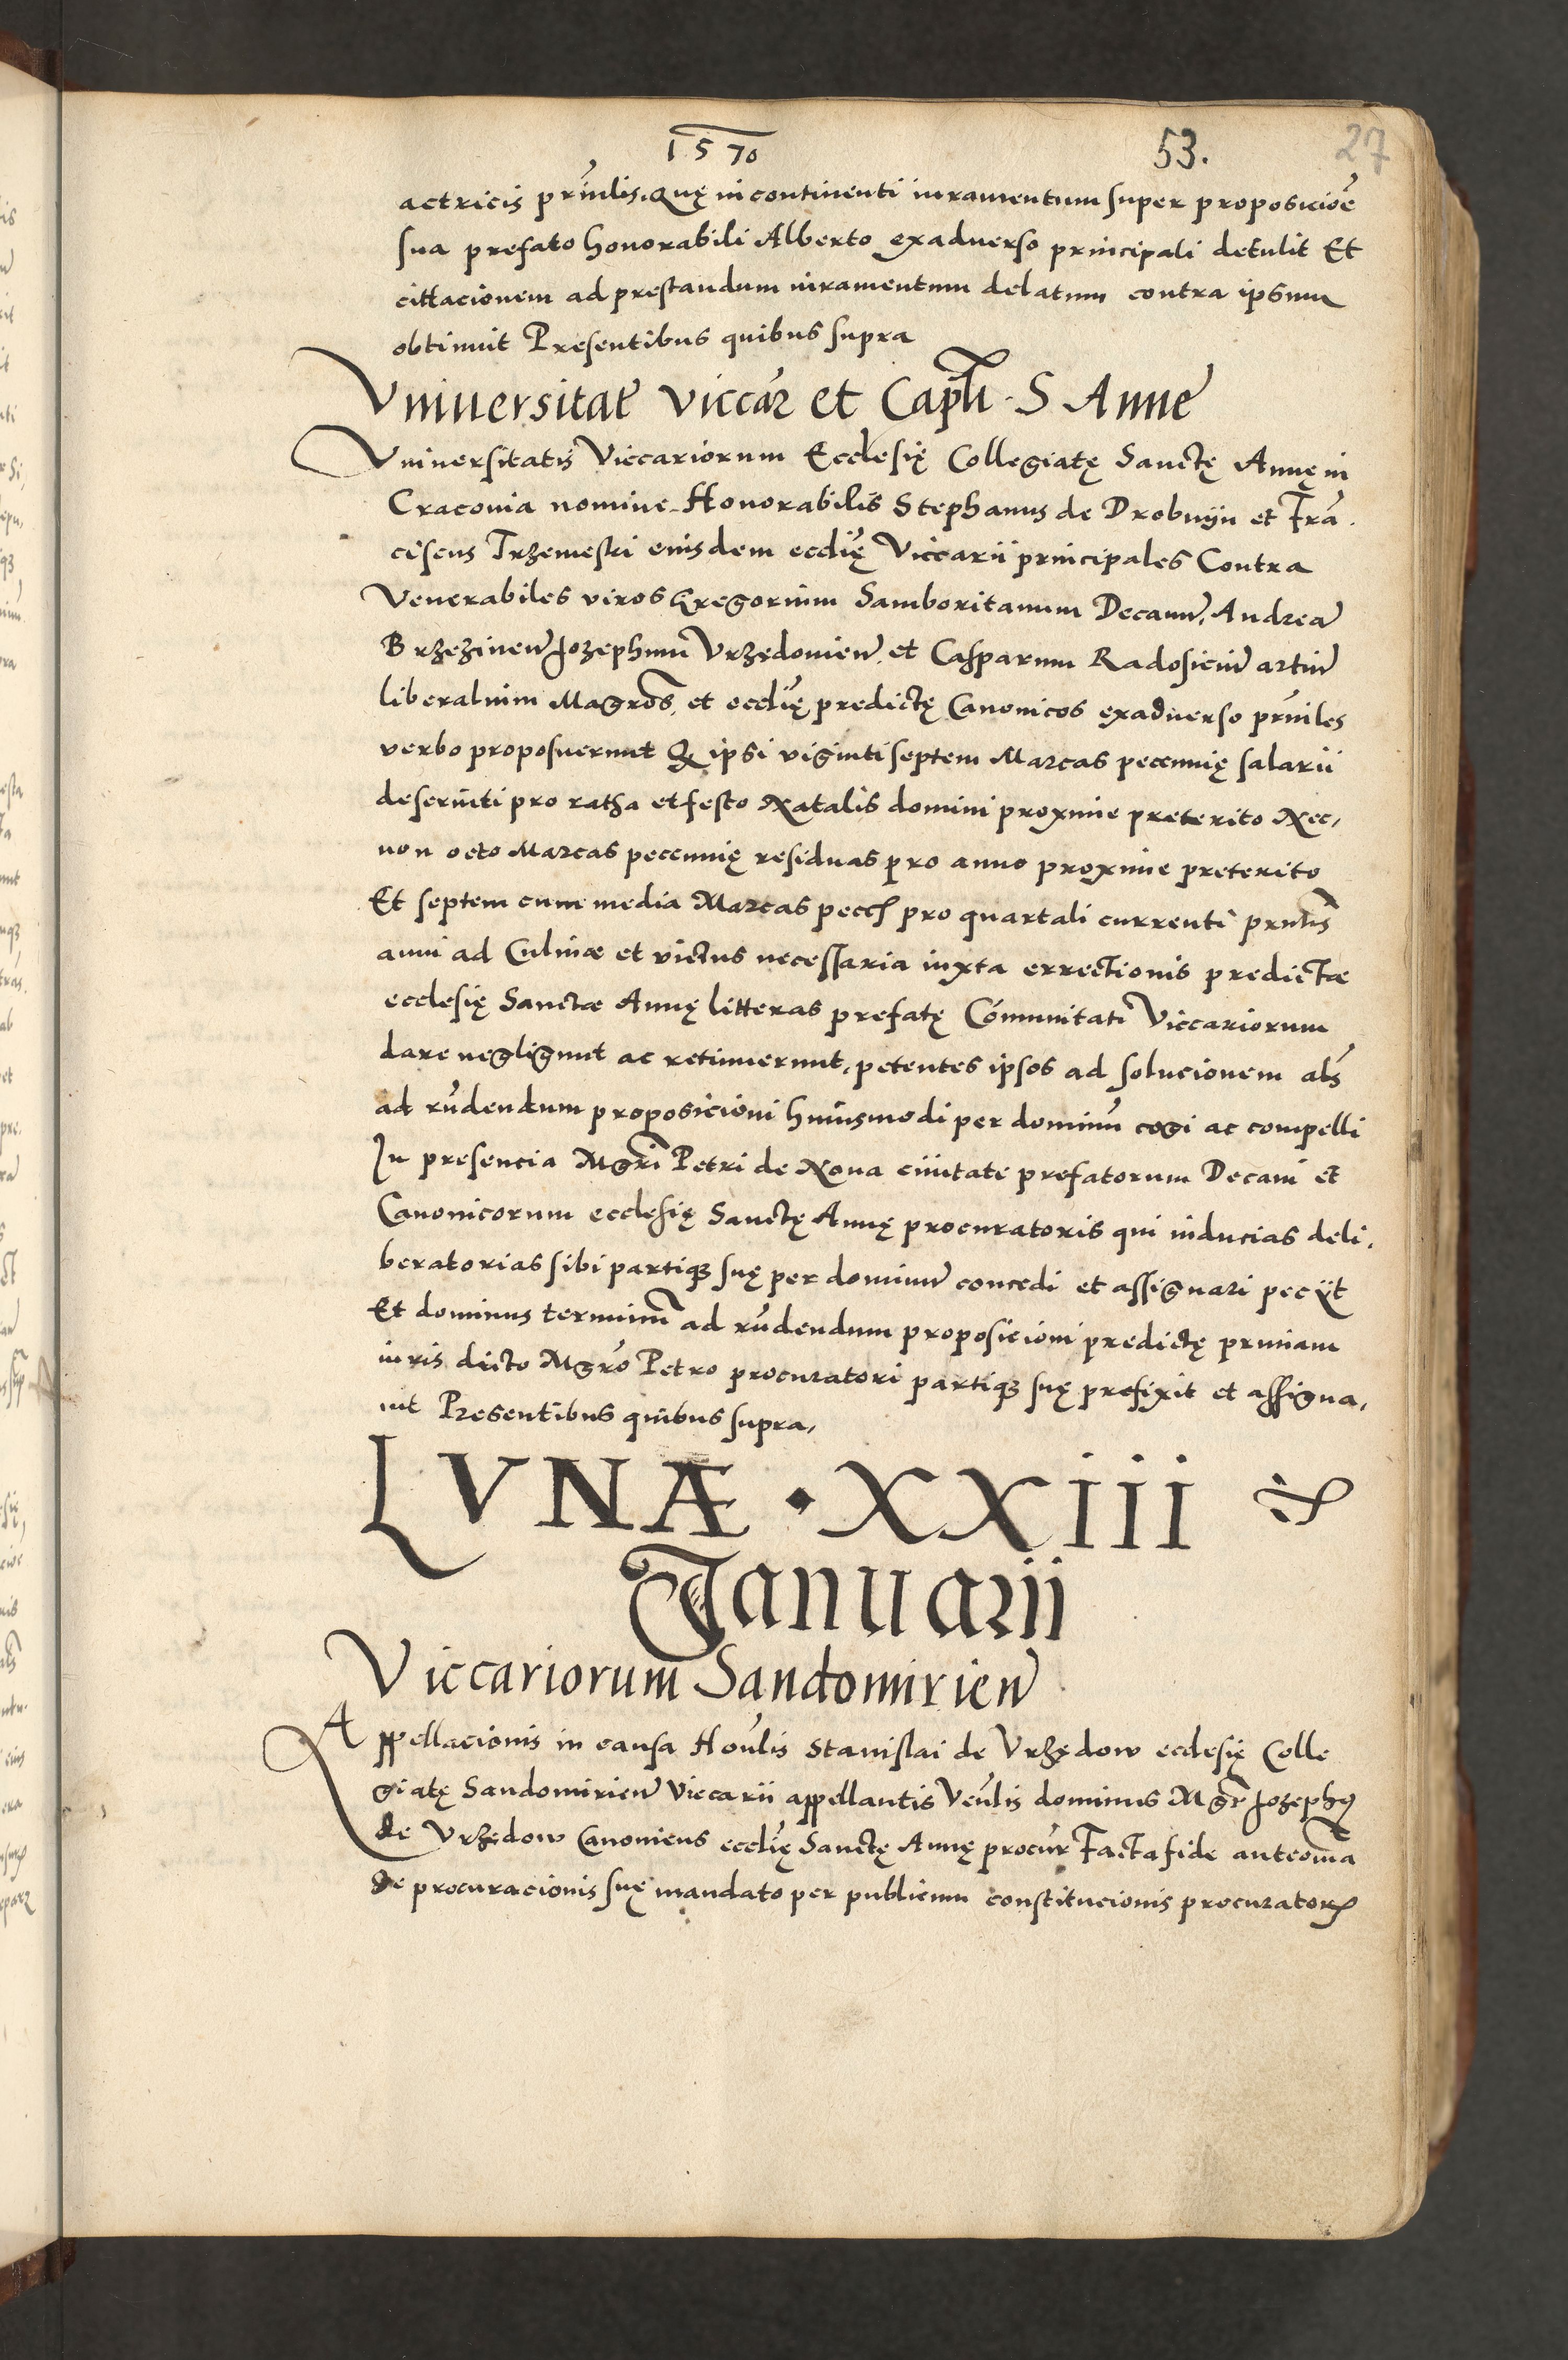 1570 53. 27
actricis prīnlis. Quę in continenti iuramentum super proposicioē
sua prefato honorabili Alberto exaduerso principali detulit Et
cittacionem ad prestandum iuramentum delatum contra ipsum
obtinuit Presentibus quibus supra
Vniuersitat̄ Viccar̄ et Capłi · S Anne
Vniuersitatis Viccariorum Ecclesię Collegiatę Sanctę Annę in
Cracouia nomine Honorabilis Stephanus de Drobnijn et Frā
ciscus Trzemeski eiusdem eccłię Viccarii principales Contra
Venerabiles viros Gregorium Samboritanum Decanū, Andreā
Brzezineñ Jozephum Vrzędouieñ. et Casparum Radosiciñ artiū
liberaluim Magr̄os, et eccłię predictę Canonicos exaduerso prīnles
verbo proposuerunt Q ipsi viginti septem Marcas pecunnię salarii
deseruiti pro ratha et festo Natalis domini proxime preterito Nec,
non octo Marcas pecunnię residuas pro anno proxime preterito
Et septem cum media Marcas pecc̄ pro quartali currenti pr̄ntis
anni ad Culinæ et victus necessaria iuxta errectionis predictæ
ecclesię Sanctæ Annę litteras prefatę Cōmunitati Viccariorum
dare negligunt ac retinuerunt, petentes ipsos ad solucionem als̄
ad rn̄dendum proposicioni huiusmodi per dominū cogi ac compelli
In presencia Mgr̄i Petri de Noua ciuitate prefatorum Decani et
Canonicorum ecclesię Sanctę Annę procuratoris qui inducias deli.
beratorias sibi partiqꝫ suę per dominū concedi et assignari peciit
Et dominus terminū ad rn̄dendum proposicioni predictę primam
iuris dicto Mgrō Petro procuratori partiqꝫ suę prefixit et assigna,
uit Presentibus quibus supra,
LVNÆ · XXIII
Januarii
Viccariorum Sandomirieñ
Appellacionis in causa Hon̄lis Stanislai de Vrzędow ecclesię Colle
giatę Sandomirieñ Viccarii appellantis Ven̄lis dominus Mgr̄ Jozephꝰ
de Vrzędow Canonicus eccłię Sanctę Annę procur̄ Facta fide anteom̄a
de procuracionis suę mandato per publicum constitucionis procurator̄